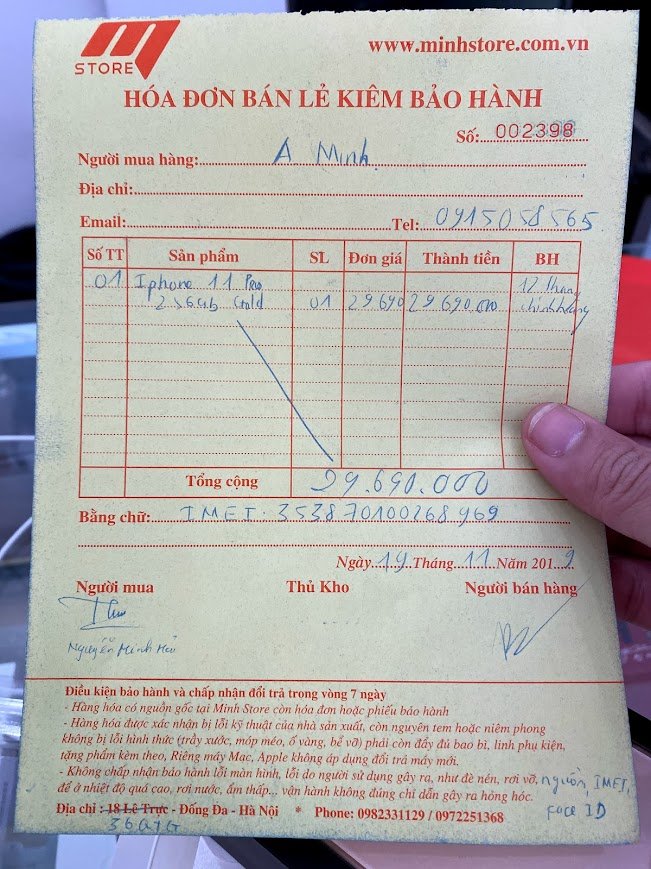 M
STORE
www.minhstore.com.vn
HÓA ĐƠN BÁN LẺ KIÊM BẢO HÀNH
Số: 002398
Người mua hàng: A Minh
Địa chỉ:
Email: Tel: 0915058565
Số TT Sản phẩm SL Đơn giá Thành tiền BH
01 Iphone 11 Pro 12 tháng
256Gb Gold 01 29690 29.690.000 chính hãng
Tổng cộng 29.690.000
Bằng chữ: IMEI: 353870100268969
Ngày 19 Tháng 11 Năm 2019
Người mua Thủ Kho Người bán hàng
Nguyễn Minh
Điều kiện bảo hành và chấp nhận đổi trả trong vòng 7 ngày
- Hàng hóa có nguồn gốc tại Minh Store còn hóa đơn hoặc phiếu bảo hành
- Hàng hóa được xác nhận bị lỗi kỹ thuật của nhà sản xuất, còn nguyên tem hoặc niêm phong
không bị lỗi hình thức (trầy xước, móp méo, ố vàng, bể vỡ) phải còn đầy đủ bao bì, linh phụ kiện,
tặng phẩm kèm theo, Riêng máy Mac, Apple không áp dụng đổi trả máy mới.
- Không chấp nhận bảo hành lỗi màn hình, lỗi do người sử dụng gây ra, như đè nén, rơi vỡ, nguồn, IMEI,
để ở nhiệt độ quá cao, rơi nước, ẩm thấp... vận hành không đúng chỉ dẫn gây ra hỏng hóc. Face ID
Địa chỉ : 18 Lê Trực - Đống Đa - Hà Nội * Phone: 0982331129 / 0972251368